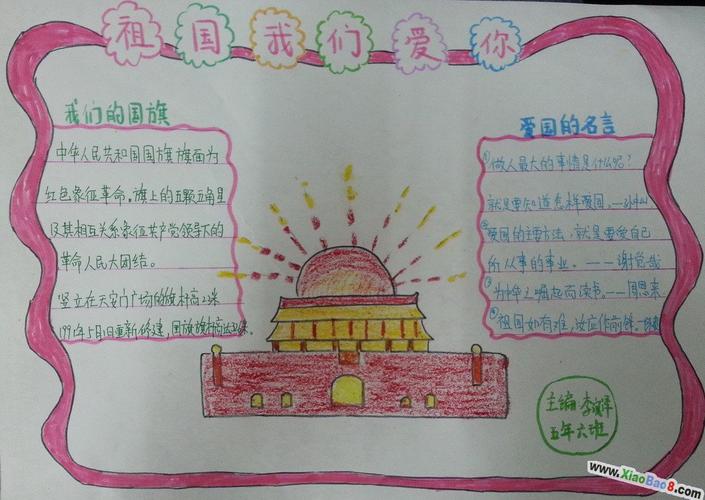 祖国我们爱你
我们的国旗
中华人民共和国国旗旗面为
红色象征革命,旗上的五颗五角星
及其相互关系象征共产党领导下的
革命人民大团结。
竖立在天安门广场的旗杆高22米
1991年5月1日重新修建,国旗旗杆高
爱国的名言
①做人最大的事情是什么呢?
就是要知道怎样爱国。——孙中山
②爱国的主要方法,就是要爱自己
所从事的事业。——谢觉哉
③为中华之崛起而读书。——周恩来
④祖国如有难,汝应作前锋。
主编:李
五年六班
www.XiaoBao8.com